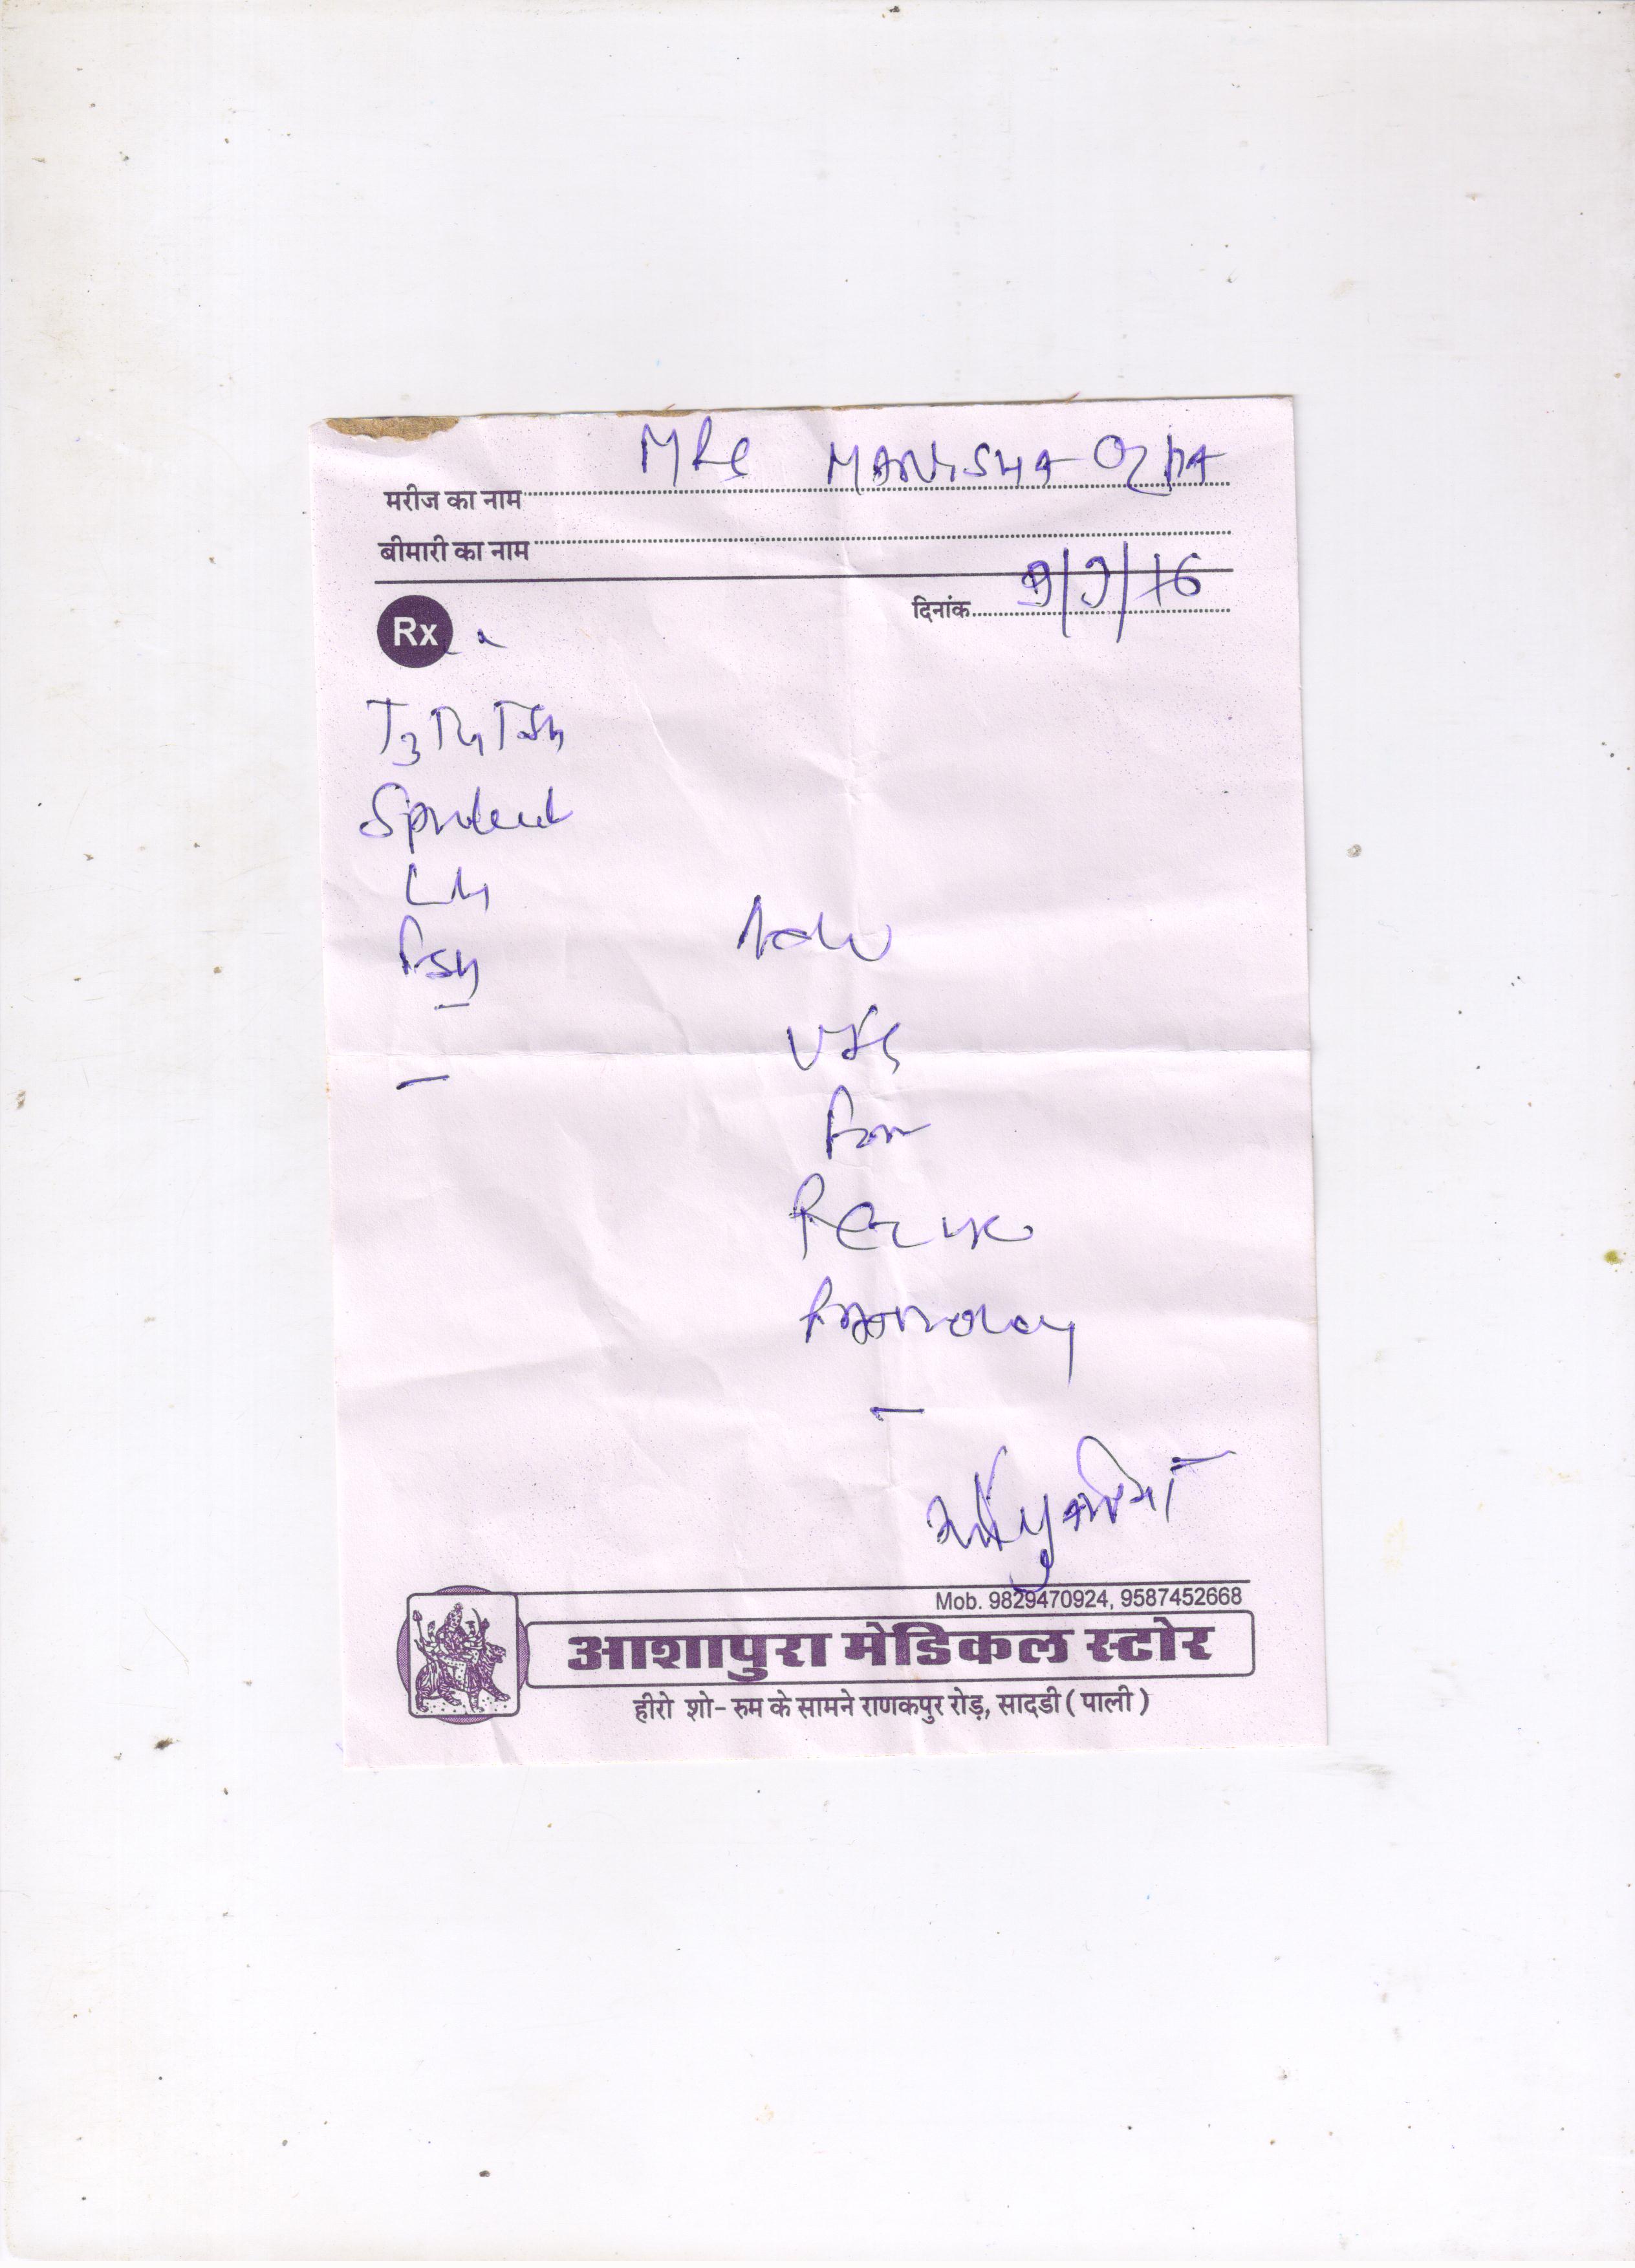 MRS MANISHA OZHA
मरीज का नाम
बीमारी का नाम
9/7/16
दिनांक
Rx
T3 T4 TSH
LH
FSH
Adv
USG
For
Pelvic
Mob. 9829470924, 9587452668
आशापुरा मेडिकल स्टोर
हीरो शो-रुम के सामने राणकपुर रोड़, सादडी ( पाली )